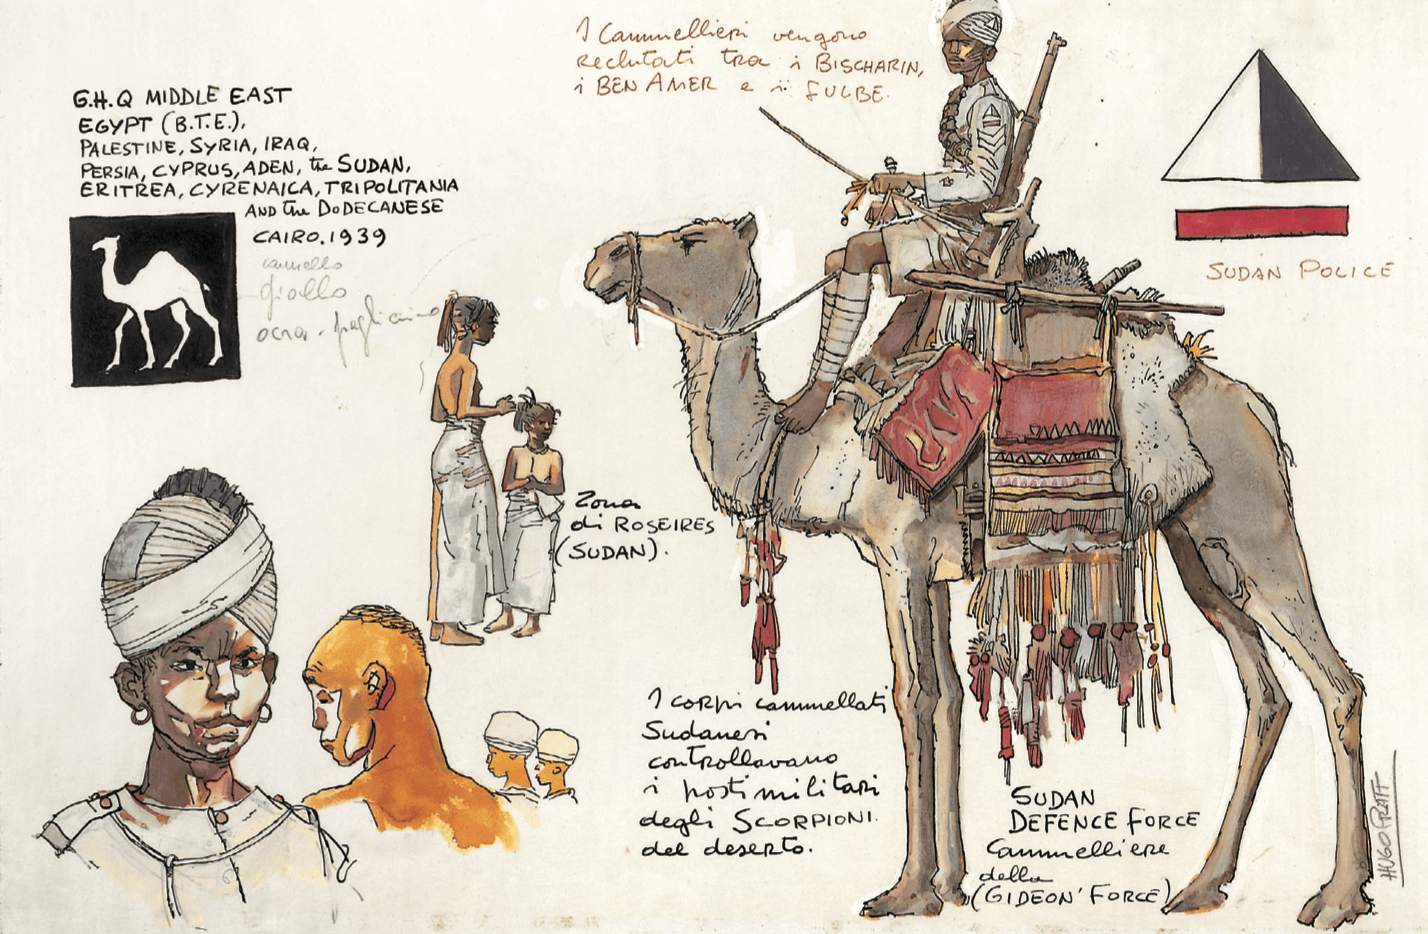 G.H.Q MIDDLE EAST
EGYPT (B.T.E.),
PALESTINE, SYRIA, IRAQ,
PERSIA, CYPRUS, ADEN, the SUDAN,
ERITREA, CYRENAICA, TRIPOLITANIA
AND the DODECANESE
CAIRO. 1939
cammello
giallo
ocra - paglierino
I Cammellieri vengono
reclutati tra i BISCHARIN,
i BEN AMER e i FULBE.
SUDAN POLICE
Zona
di ROSEIRES
(SUDAN).
I corpi cammellati
Sudanesi
controllavano
i posti militari
degli SCORPIONI
del deserto.
SUDAN
DEFENCE FORCE
Cammelliere
della
(GIDEON' FORCE)
HUGO PRATT